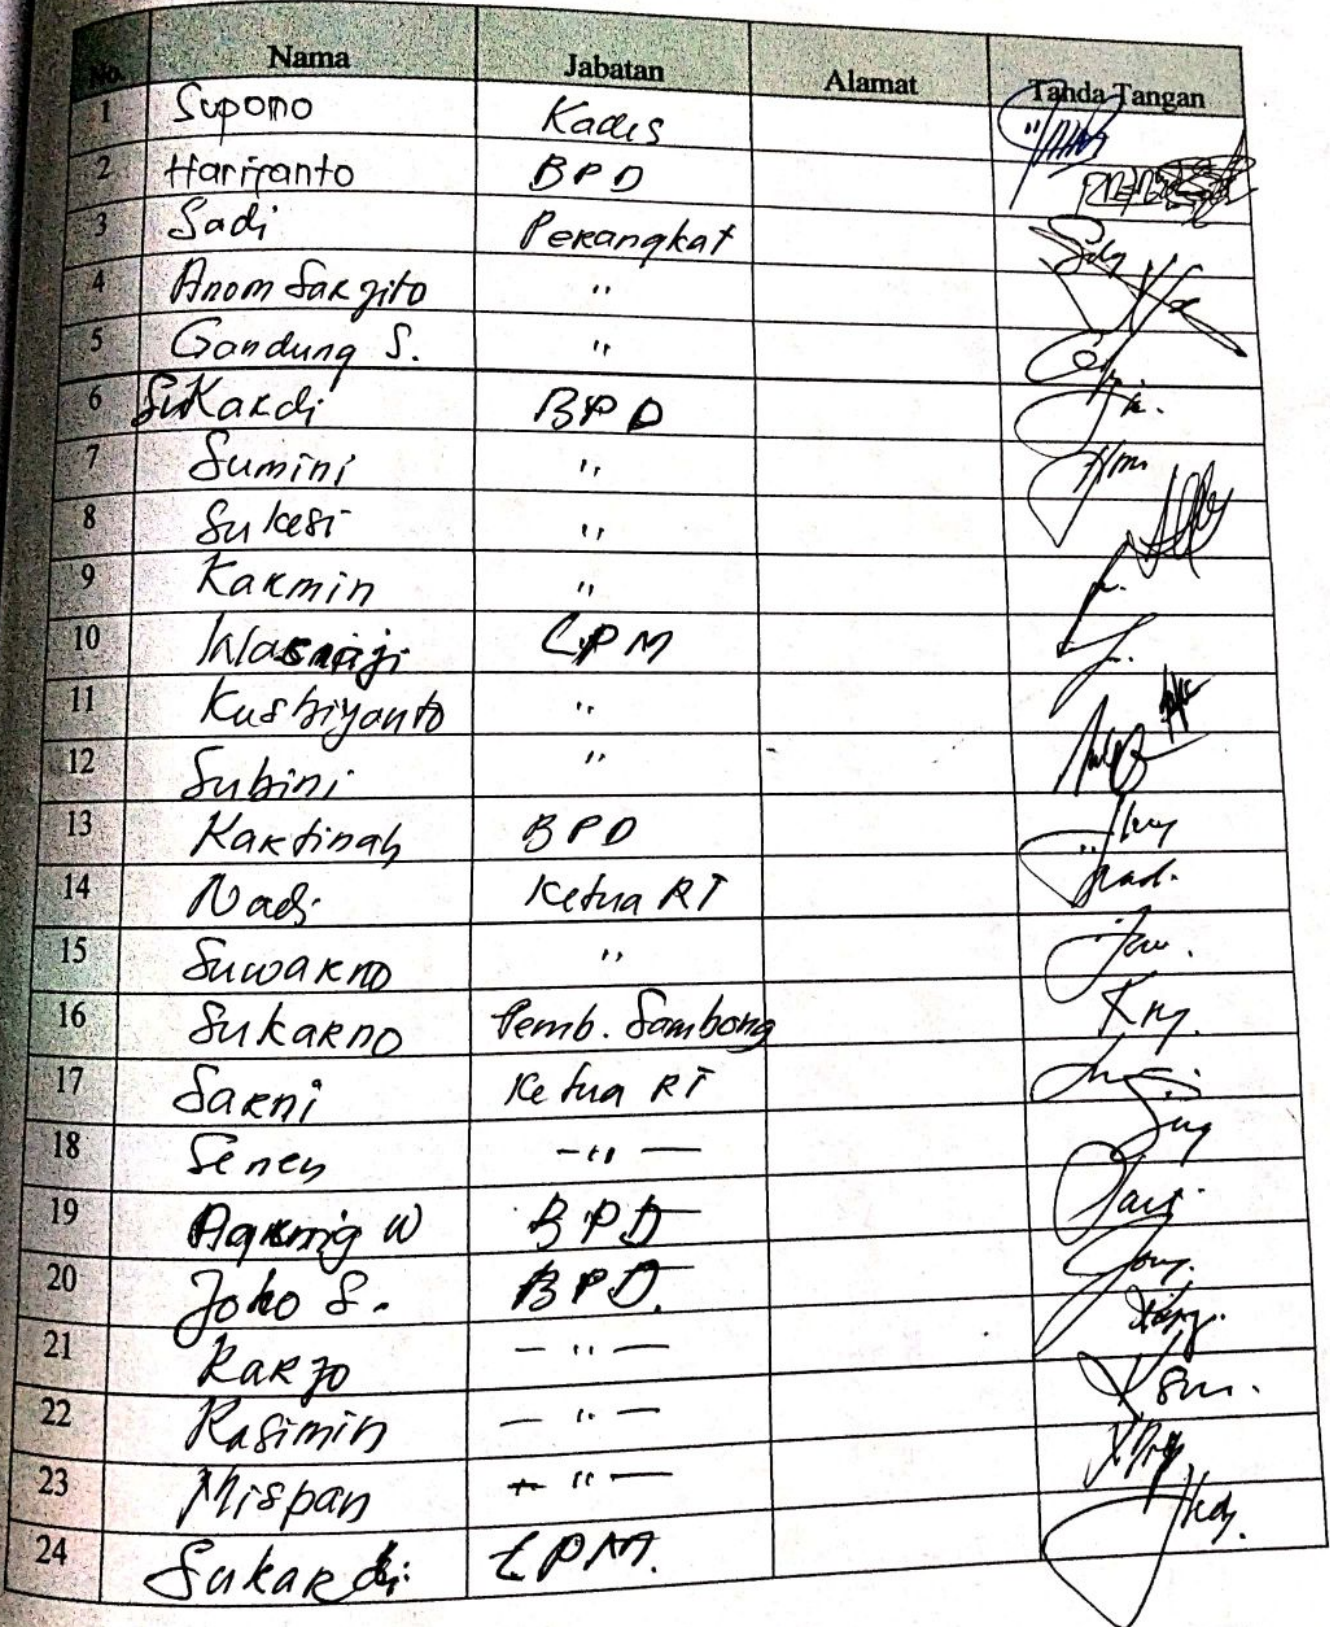 No. Nama Jabatan Alamat Tanda Tangan
1 Supono Kades
2 Hariyanto BPD
3 Sadi Perangkat
4 Anom Sarjito "
5 Gandung S. "
6 Sukardi BPD
7 Sumini "
8 Sukesi "
9 Karmin "
10 LPM
11 Kusbiyanto "
12 Subini "
13 Kartinah BPD
14 Nadi Ketua RT
15 Suwarno "
16 Sukarno Pemb. Sambong
17 Sarni Ketua RT
18 Senen - " -
19 W BPD
20 Joko S. BPD.
21 Karjo - " -
22 Rasimin - " -
23 Mispan - " -
24 Sukardi LPM.